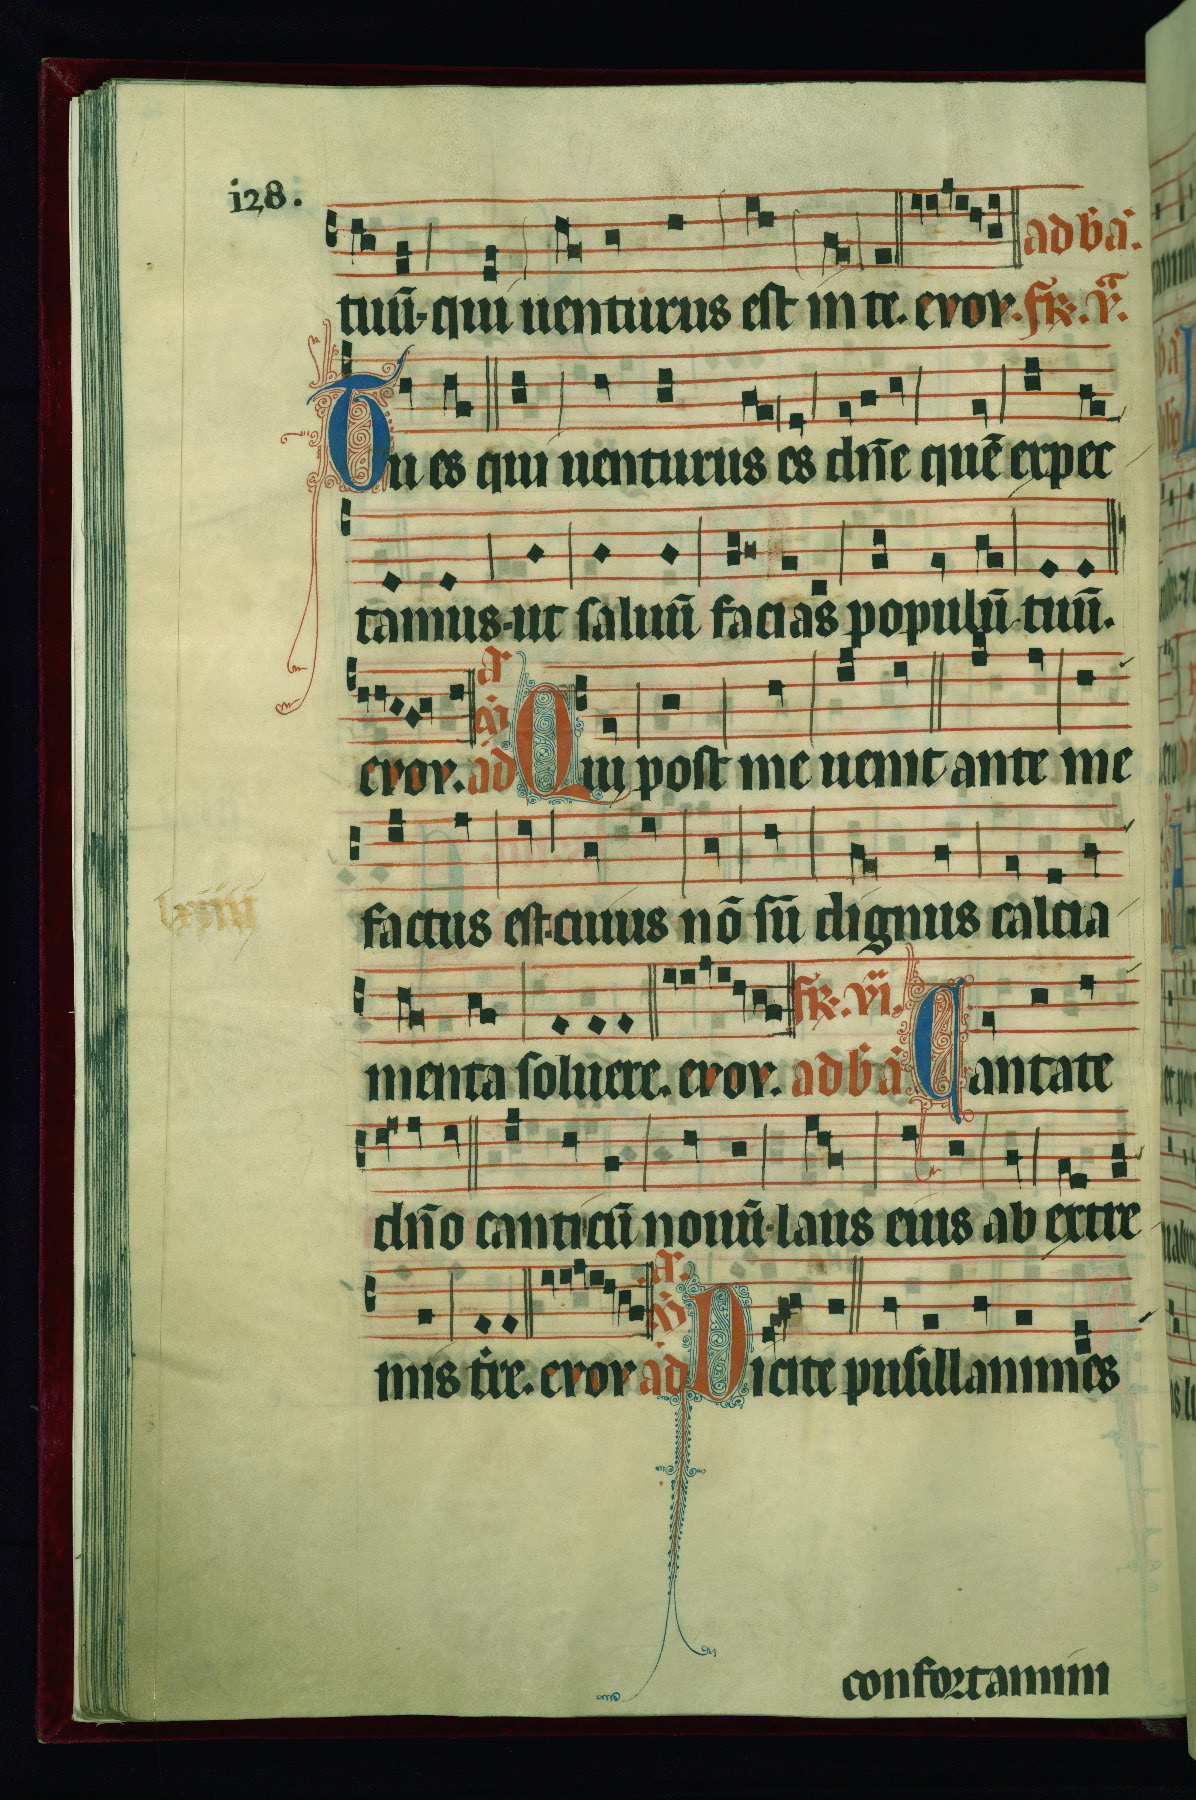 i28.
tuū. qui uenturus est in te. evov. ad bā.
fr. v̄.
Tu es qui uenturus es dn̄e quē expec
tamus. ut saluū facias populū tuū.
evov. ad Quj post me uenit ante me
factus est. cuius nō sū dignus calcia
menta soluere. evov. fr. vi. ad bā Cantate
dn̄o canticū nouū. laus eius ab extre
mis tr̄e. evov ad Dicite pusillanimes
lxiiii
confortamini